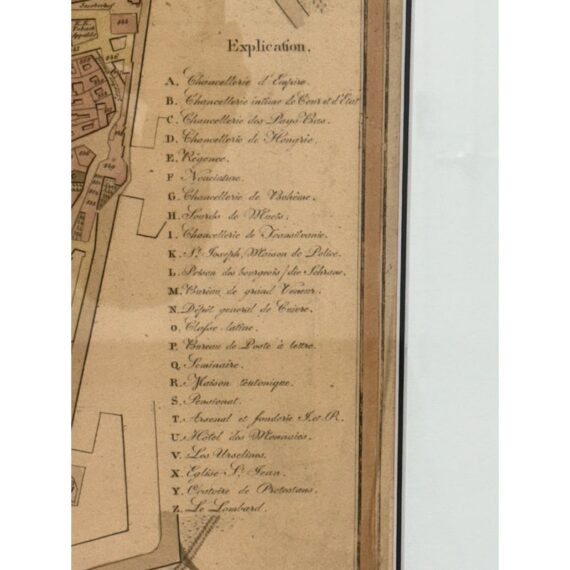 Jacoberhof
K.K.
Taback
Appalto
Explication.
A. Chancellerie d'Empire.
B. Chancellerie intime de Cour et d'Etat
C. Chancellerie des Pays-Bas.
D. Chancellerie de Hongrie.
E. Régence.
F Nonciature.
G. Chancellerie de Bohême.
H. Sourds de Muets.
I. Chancellerie de Transilvanie.
K. St. Joseph, Maison de Police.
L. Prison des bourgeois/die Schrane.
M. Bureau de grand Veneur.
N. Dépôt general de Cuivre.
O. Classe latine.
P. Bureau de Poste à lettre.
Q. Seminaire.
R. Maison teutonique.
S. Pensionat.
T. Arsenal et fonderie I. et R.
U. Hôtel des Monnaies.
V. Les Urselines.
X. Eglise St. Jean.
Y. Oratoire de Protestans.
Z. Le Lombard.